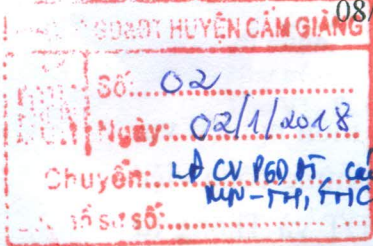 08/
GD&ĐT HUYỆN CẨM GIÀNG
ĐẾN
Số:.....02
Ngày:.....02/1/2018
Chuyển:...LĐ CV PGD ĐT, các
MN-TH, THC
hồ sơ số: